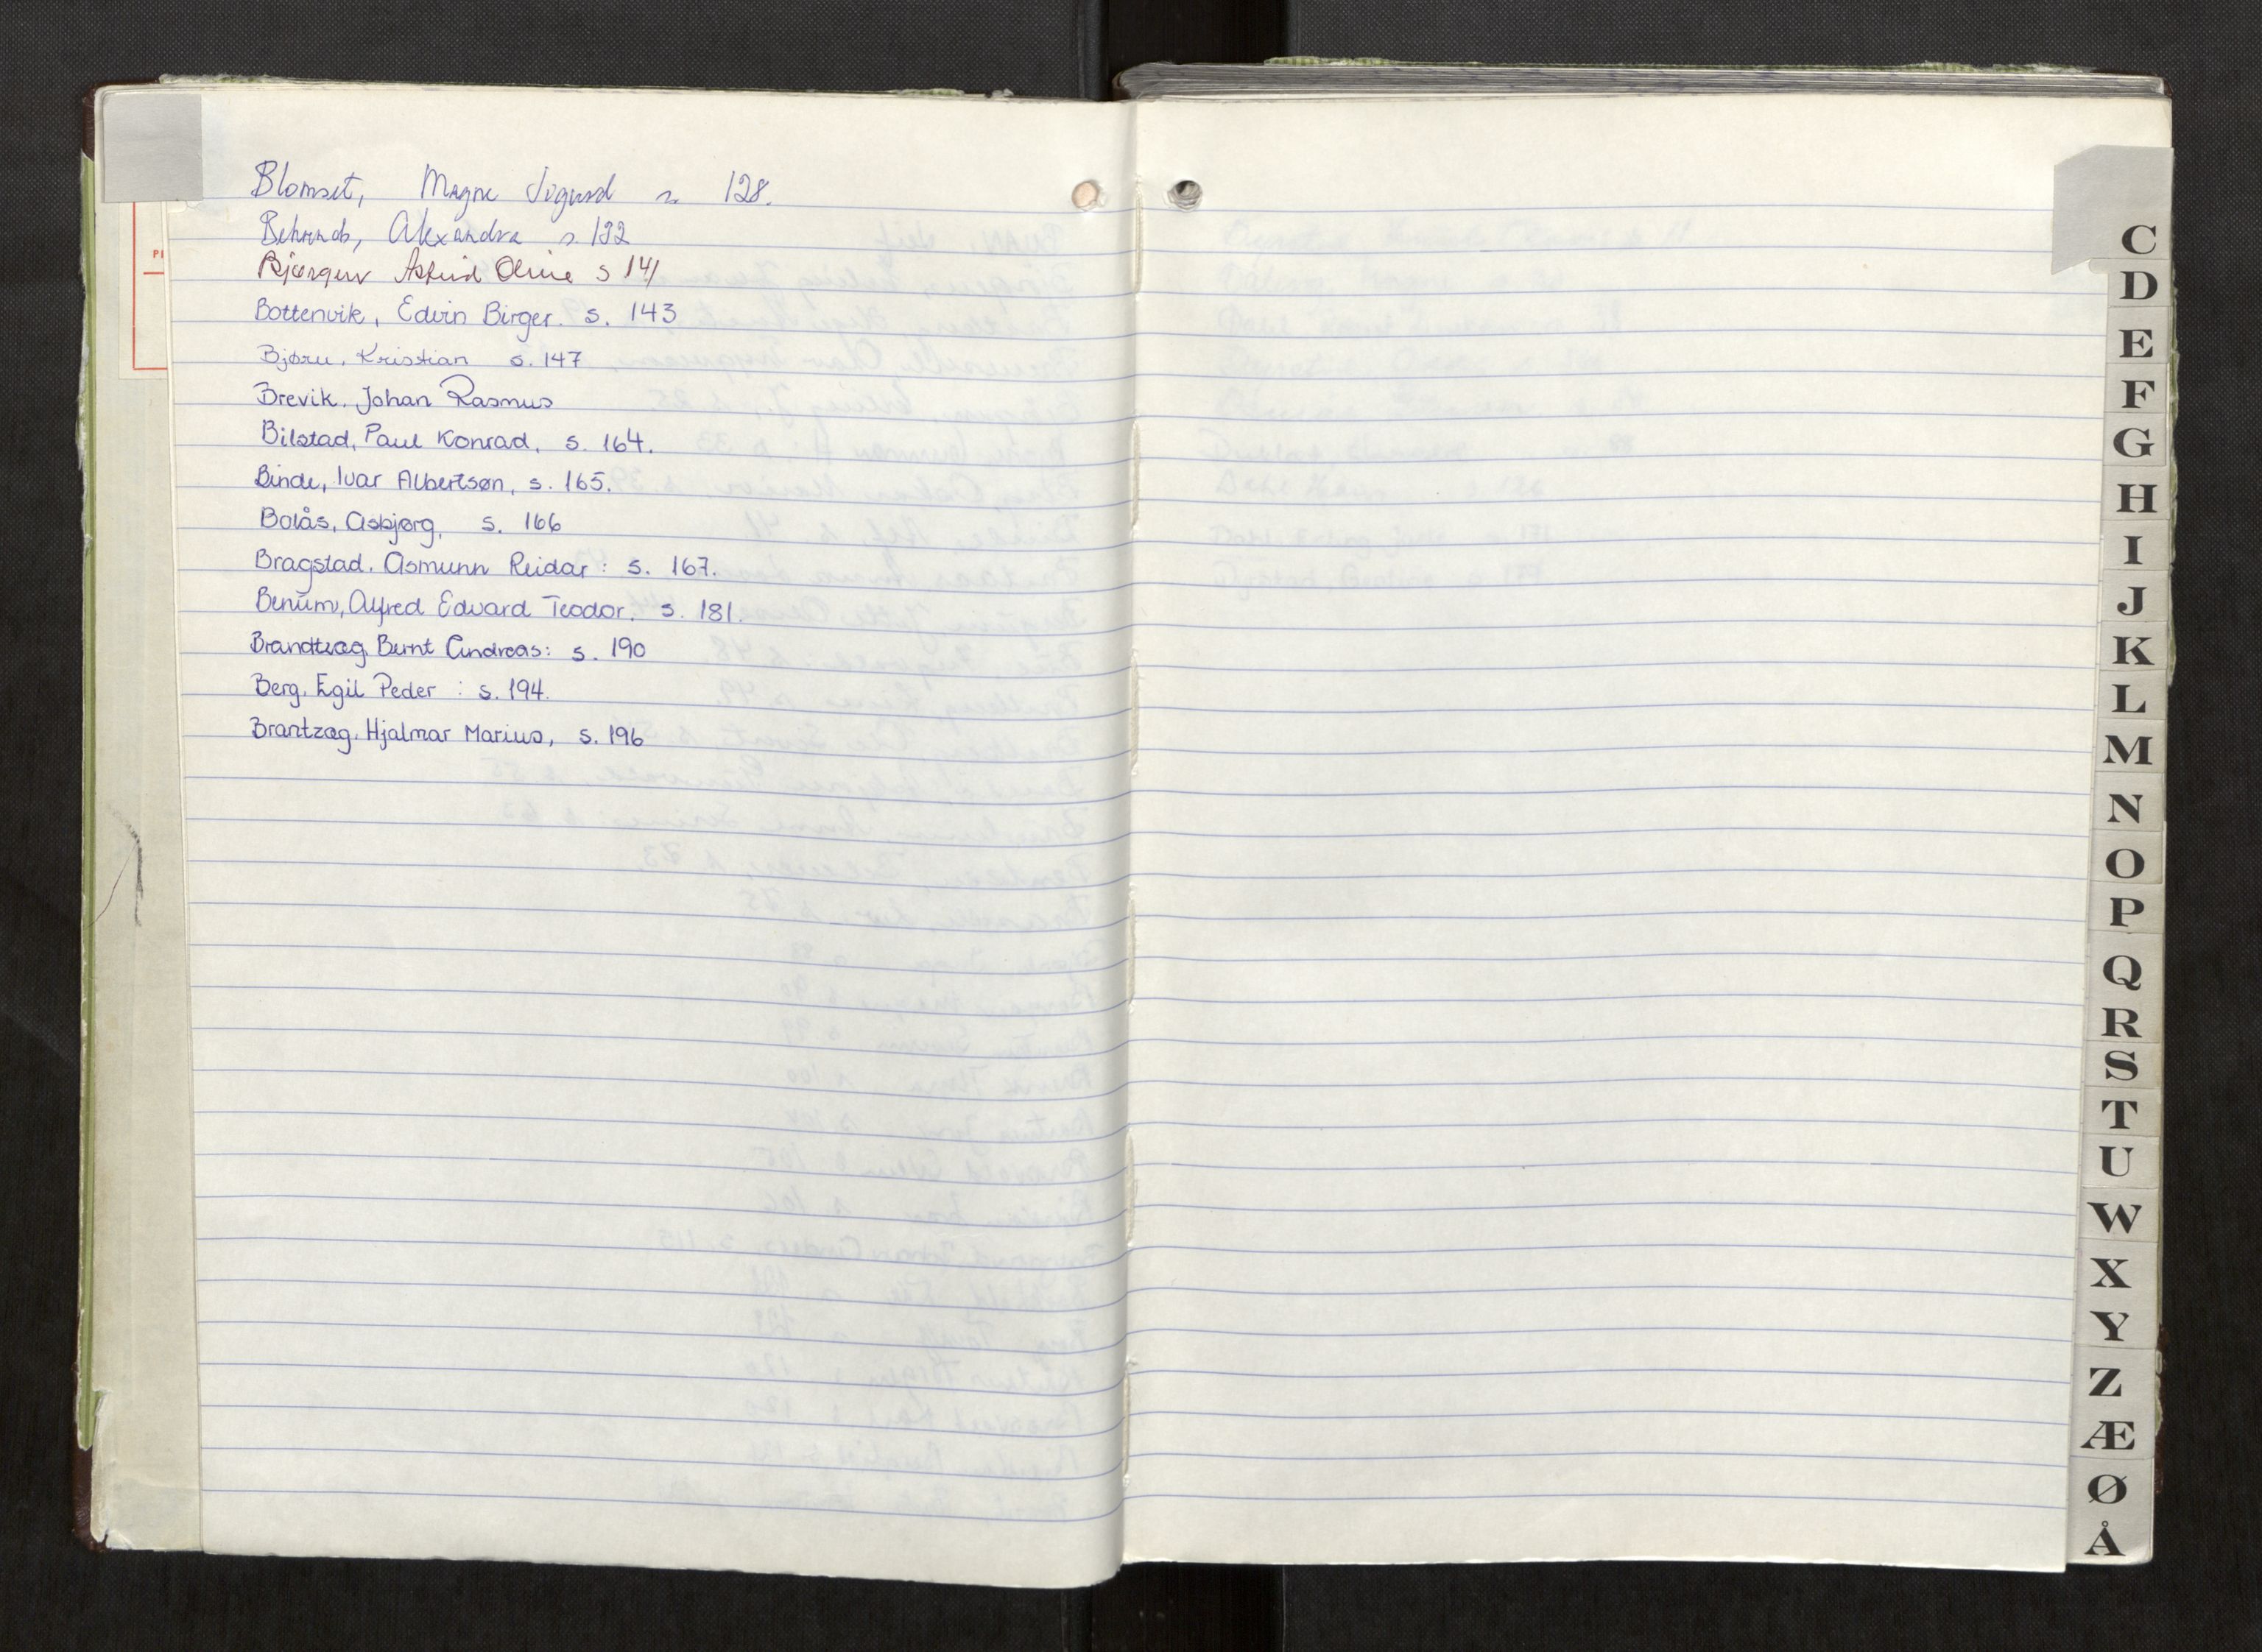 Blomset, Magne Sigurd s. 128.
Behrends, Alexandra s. 132
Bjørgen Astrid Oline s 141
Bottenvik, Edvin Birger. s. 143
Bjøru, Kristian s. 147
Brevik, Johan Rasmus
Bilstad, Paul Konrad, s. 164.
Binde, Ivar Albertsøn, s. 165.
Bolås, Asbjørg, s. 166
Bragstad, Asmunn Reidar: s. 167.
Benum, Alfred Edvard Teodor, s. 181.
Brandtzæg, Bernt Andreas: s. 190
Berg, Egil Peder : s. 194.
Brantzæg, Hjalmar Marius, s. 196
C
D
E
F
G
H
I
J
K
L
M
N
O
P
Q
R
S
T
U
W
X
Y
Z
Æ
Ø
Å